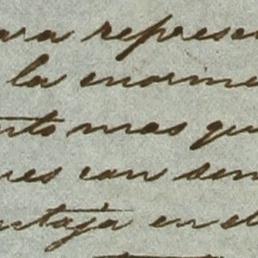 ara represe
la enorme
nto mas qu
es con sen
ntaja en el